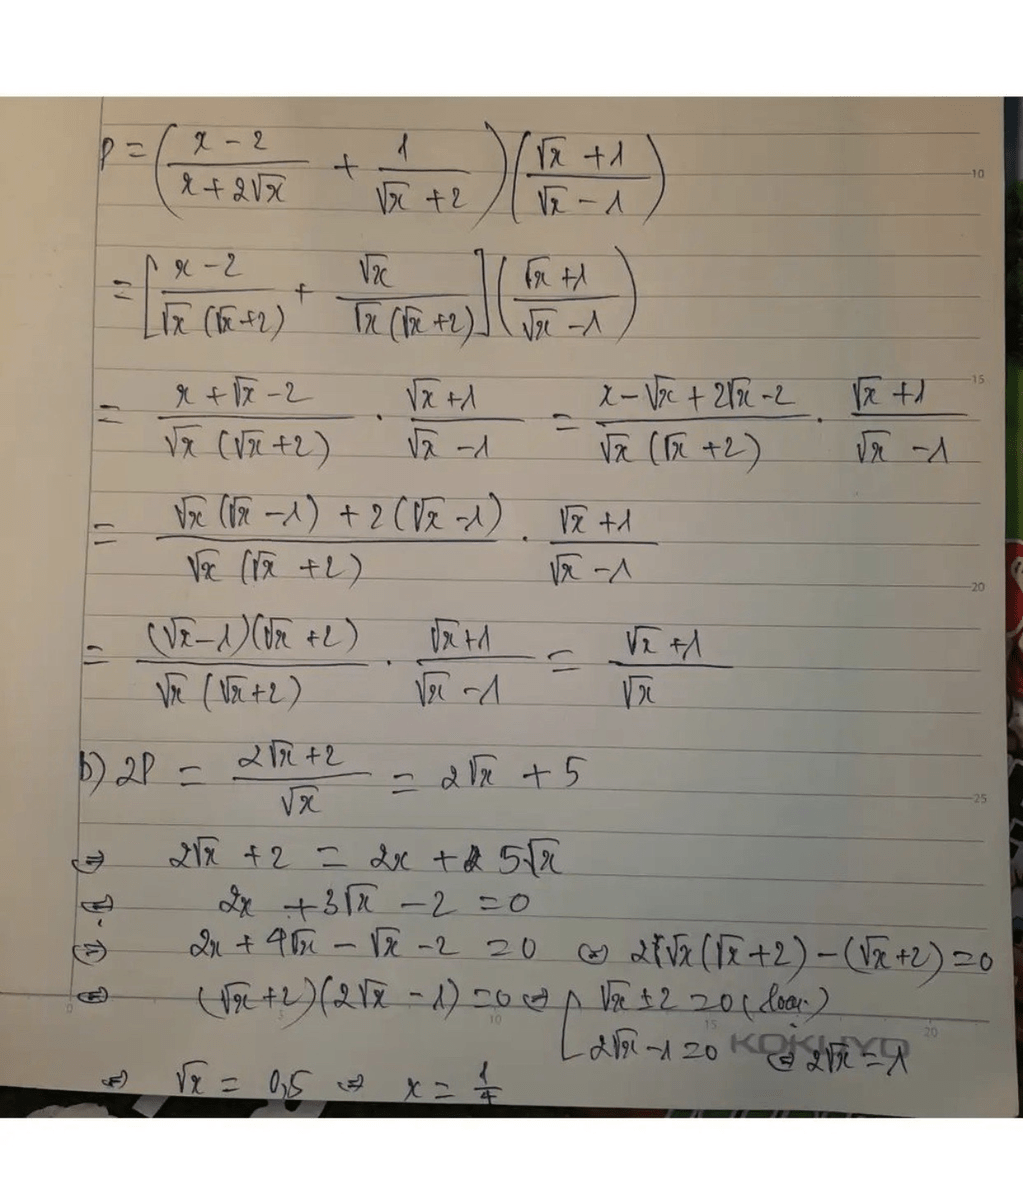 P = ( (x - 2)/(x + 2√x) + 1/(√x + 2) ) ( (√x + 1)/(√x - 1) )
10
= [ (x - 2)/(√x (√x + 2)) + √x/(√x (√x + 2)) ] ( (√x + 1)/(√x - 1) )
15
= (x + √x - 2)/(√x (√x + 2)) . (√x + 1)/(√x - 1) = (x - √x + 2√x - 2)/(√x (√x + 2)) . (√x + 1)/(√x - 1)
= (√x (√x - 1) + 2 (√x - 1))/(√x (√x + 2)) . (√x + 1)/(√x - 1)
20
= ((√x - 1)(√x + 2))/(√x (√x + 2)) . (√x + 1)/(√x - 1) = (√x + 1)/√x
b) 2P = (2√x + 2)/√x = 2√x + 5
25
⇔ 2√x + 2 = 2x + 5√x
⇔ 2x + 3√x - 2 = 0
⇔ 2x + 4√x - √x - 2 = 0 ⇔ 2√x (√x + 2) - (√x + 2) = 0
⇔ (√x + 2)(2√x - 1) = 0 ⇔ [ √x + 2 = 0 (loại)
0 5 10 15 20
2√x - 1 = 0 ⇔ 2√x = 1
KOKUYO
⇔ √x = 0,5 ⇔ x = 1/4